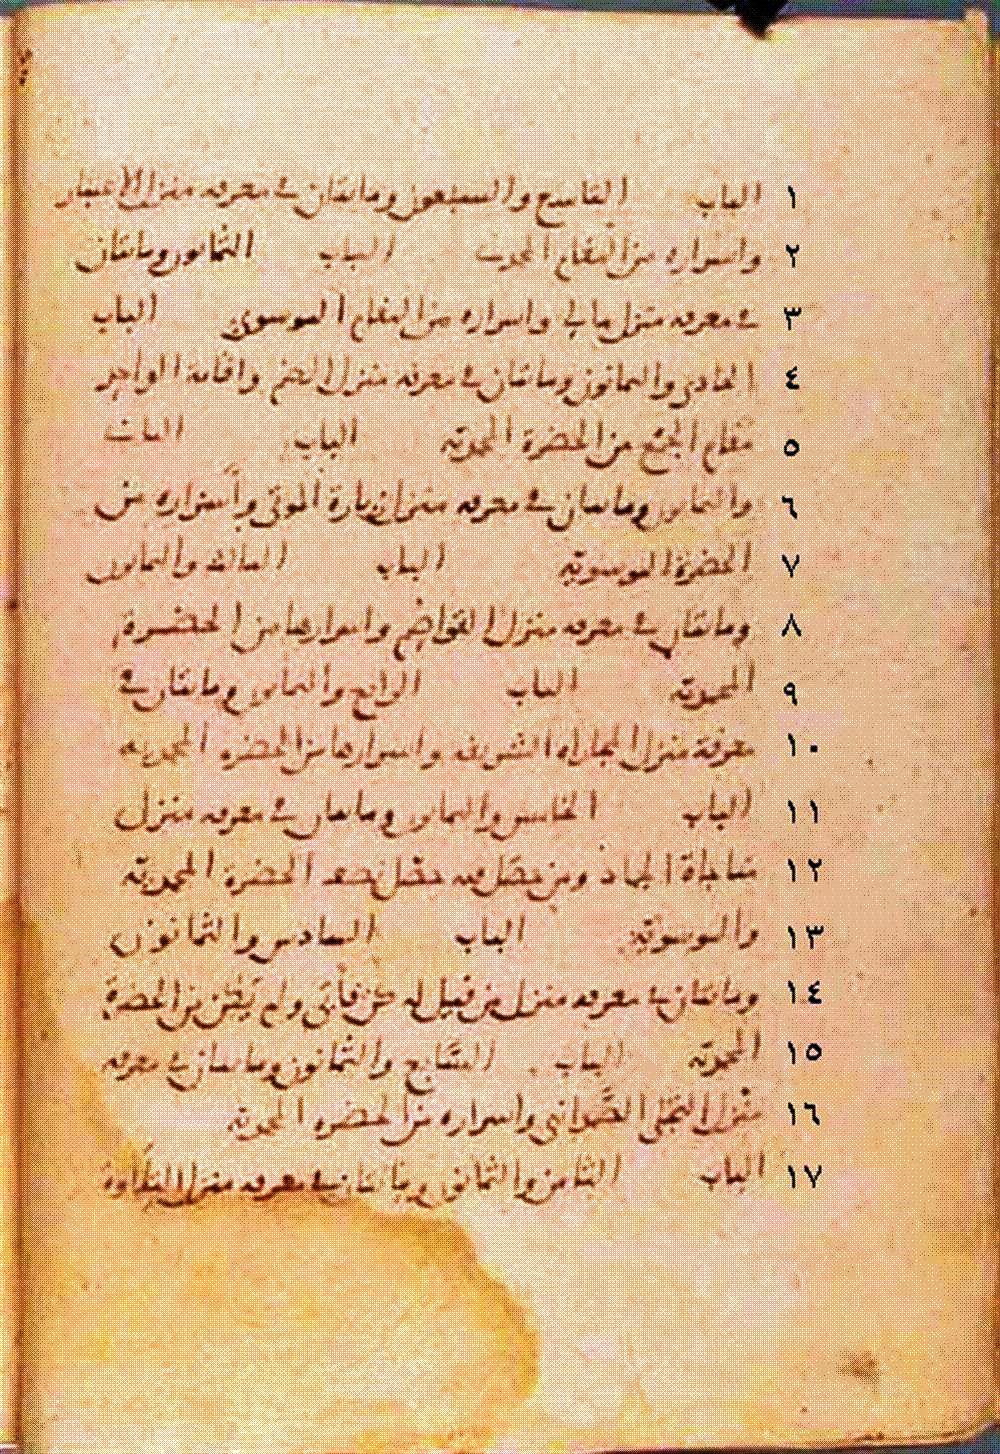 ١ الباب التاسع والسبعون وماىتان في معرفه منزل الاعتبار
٢ واسراره من المقام المحمدى الباب الثمانون وماىتان
٣ في معرفه منزل مالي واسراره من المقام الموسوي الباب
٤ الحادى والثمانون وماىتان في معرفه منزل الضم واقامة الواحد
٥ مقام الجمع من الحضرة المحمدية الباب الثاني
٦ والثمانون وماىتان في معرفه منزل زيارة الموتى وأسراره من
٧ الحضرة الموسوية الباب الثالث والثمانون
٨ وماىتان في معرفه منزل القواصم واسرارها من الحضرة
٩ المحمدية الباب الرابع والثمانون وماىتان في
١٠ معرفة منزل المجاراه الشريفه واسرارها من الحضره المحمديه
١١ الباب الخامس والثمانون وماىتان في معرفه منزل
١٢ مناجاة الجماد ومن حصل فيه حصل نصف الحضرة المحمدية
١٣ والموسوية الباب السادس والثمانون
١٤ وماىتان في معرفه منزل من قيل له كن فأبى ولم يكن من الحضرة
١٥ المحمدية الباب السَّابع والثمانون وماىتان في معرفه
١٦ منزل التجلى الصَّمدانى واسراره من الحضره المحمدية
١٧ الباب الثامن والثمانون وماىتان في معرفه منزل التلاوة